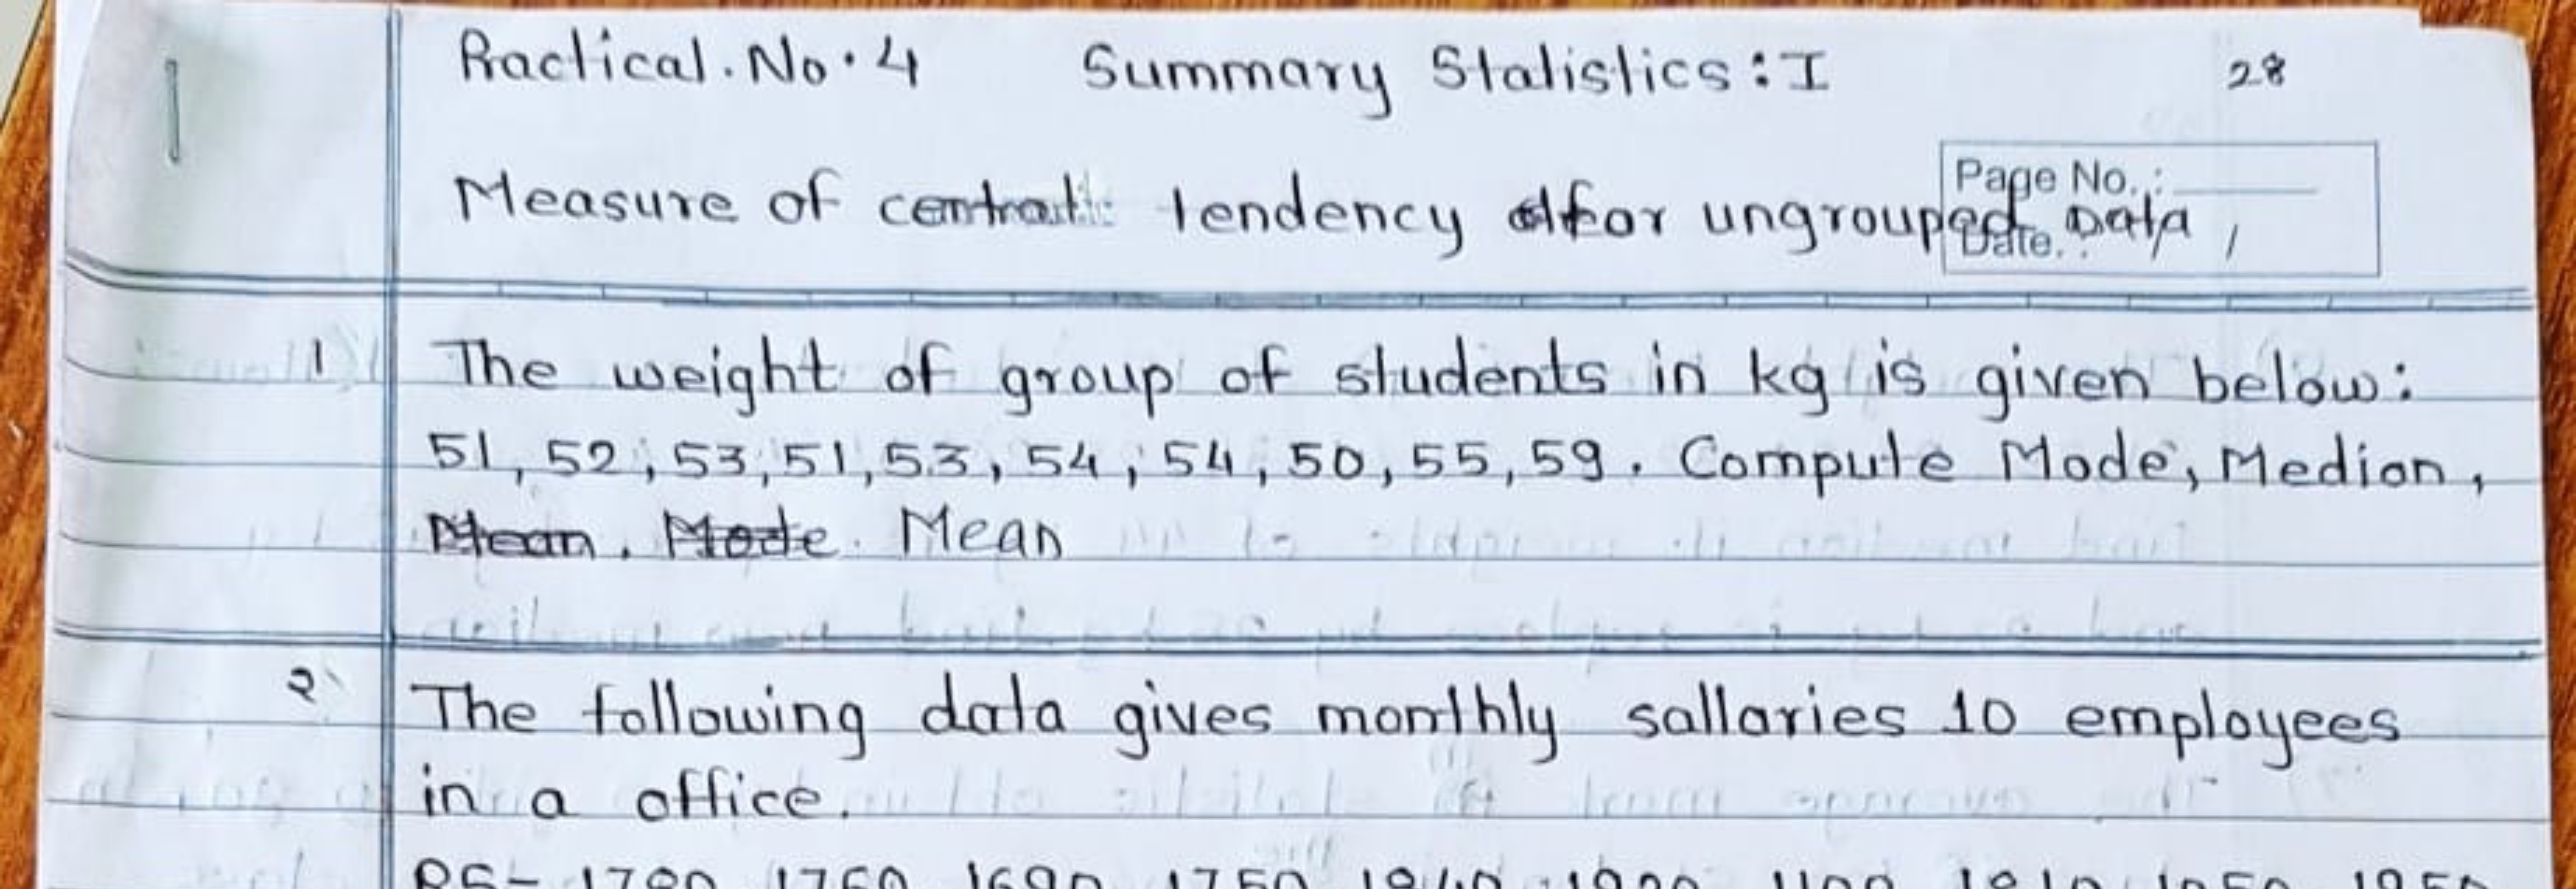 Practical.No.4 Summary Statistics:I 28
Page No.:
Measure of central tendency for ungrouped Data
Date. :
1 The weight of group of students in kg is given below:
51, 52, 53, 51, 53, 54, 54, 50, 55, 59. Compute Mode, Median,
Mean. Mode. Mean
2 The following data gives monthly sallaries 10 employees
in a office.
RS-